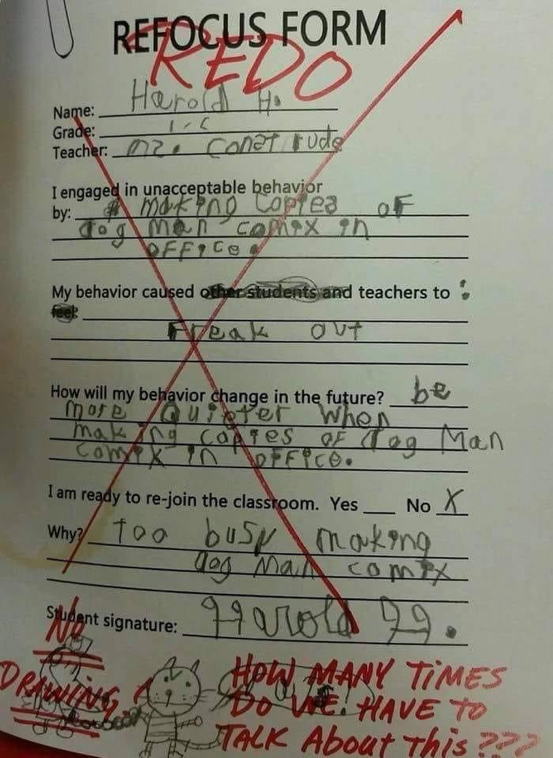 REFOCUS FORM
REDO
Name: Harold H.
Grade: 1-C
Teacher: mz. Construde
I engaged in unacceptable behavior
by: making copies of
dog man comix in
office.
My behavior caused other students and teachers to :
feel:
Freak out
How will my behavior change in the future? be
more Quieter when
making copies of dog Man
comix in office.
I am ready to re-join the classroom. Yes ___ No X
Why? too busy making
dog man comix
Student signature: Harold H.
No
DRAWING
HOW MANY TIMES
Do WE HAVE TO
TALK About This ???